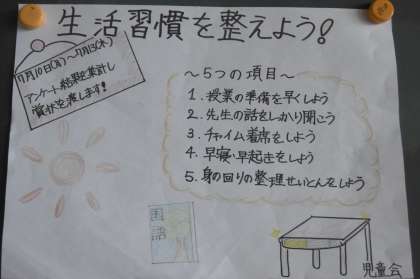 生活習慣を整えよう!
7月10日(月)～7月13(木)
アンケート結果を集計し
賞状を渡します!
～5つの項目～
1. 授業の準備を早くしよう
2. 先生の話をしっかり聞こう
3. チャイム着席をしよう
4. 早寝・早起きをしよう
5. 身の回りの整理せいとんをしよう
国語
児童会